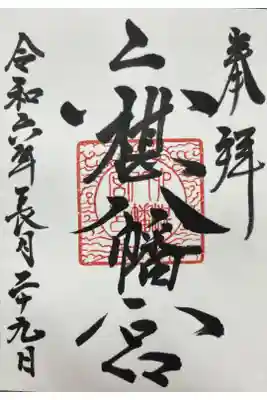 奉拝
八幡宮
令和六年長月二十九日